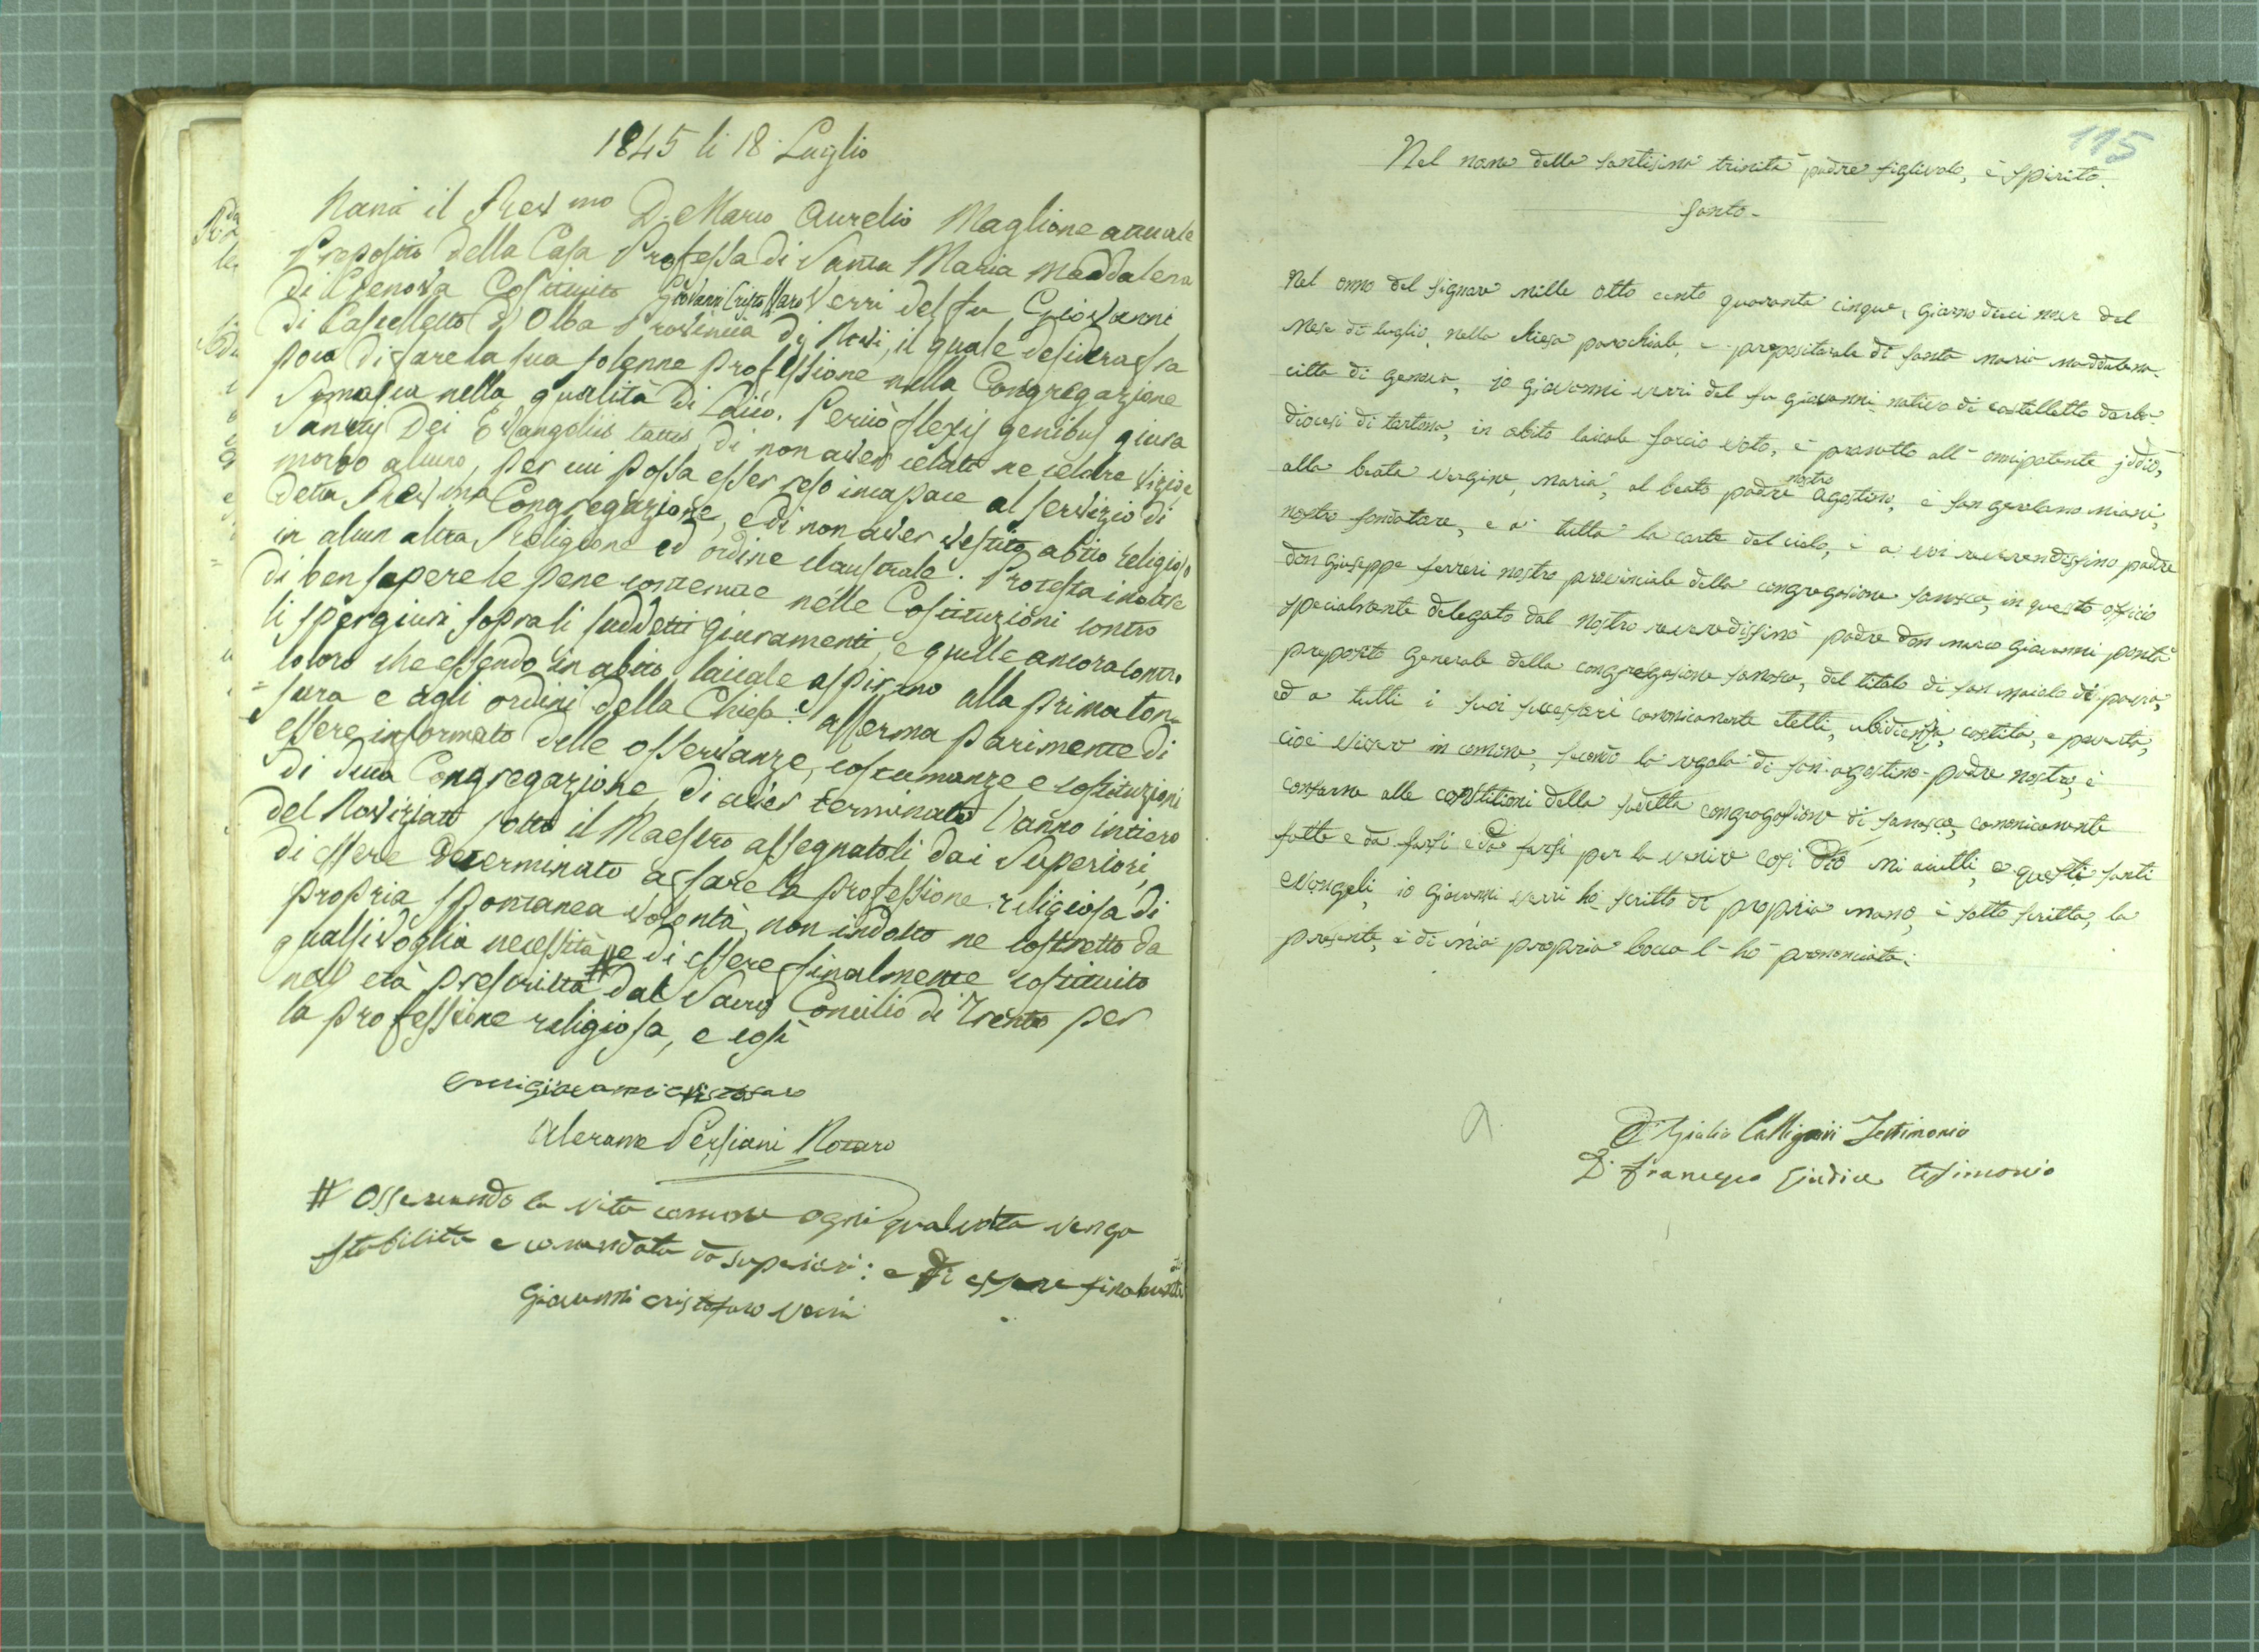 1845 li 18 Luglio
Nanti il Rev.mo D. Marco Aurelio Maglione attuale
Preposito della Casa Professa di Santa Maria Maddalena
di Genova Costituito Giovanni Cristoffaro Verri del fu Giovanni
di Castelletto d'Olba Provincia di Novi, il quale desidera fra
poco di fare la sua solenne professione nella Congregazione
Somasca nella qualità di Laico. Perciò flexis genibus giura
Sanctis Dei Evangeliis tactis di non aver celato ne celare vizio e
morbo alcuno, per cui possa esser reso incapace al servizio di
detta Rev.ma Congregazione, e di non aver vestito abito religioso
in alcun altra Religione ed ordine claustrale. Protesta inoltre
di ben sapere le pene contenute nelle Costituzioni contro
li spergiuri sopra li suddetti giuramenti, e quelle ancora contro
coloro che essendo in abito laicale aspirano alla prima ton=
=sura e agli ordini della Chiesa: afferma parimente di
essere informato delle osservanze, costumanze e costituzioni
di detta Congregazione, di aver terminato l'anno intiero
del Noviziato sotto il Maestro assegnatoli dai Superiori,
di essere determinato a fare la professione religiosa di
propria spontanea volontà, non indotto ne costretto da
qualsivoglia necessità # e di essere finalmente costituito
nell' età prescritta dal Sacro Concilio di Trento per
la professione religiosa, e così
verri giovanni cristofaro
Alerame Persiani Notaro
# Osservando la vita comune ogni qualvolta venga
stabilita e comandata da superiori: e di essere finalmente
giovanni cristofaro verri
115
Nel nome della santisima trinità padre figlivolo, è spirito
santo.
Nel anno del signore mille otto cento quaranta cinque, giorno dieci nove del
mese di luglio, nella chiesa parochiale, e prepositorale di santa maria maddalena
città di genova, io giovanni verri del fu giovanni nativo di castelletto dorba
diocesi di tortona, in abito laicale faccio voto, è prometto all'onnipotente iddio,
alla beata vergine, maria, al beato padre nostro agostino, è san girolamo miani,
nostro fondatore, e a tutta la corte del cielo, è a voi reverendissimo padre
don giuseppe ferreri nostro provinciale della congregasione somasca, in questo officio
specialmente delegato dal nostro reverendissimo padre don marco giovanni ponta
preposto generale della congregasione somasca, del titolo di san maiolo di pavia,
ed a tutti i suoi sucessori canonicamente eletti, ubidiensa, castità, e povertà,
cioè vivere in comune, secondo la regola di san agostino padre nostro, è
conforme alle constitutioni della sudetta congregasione di somasca, canonicamente
fatte e da farsi e da farsi per la venire così Dio mi aiutti, e questi santi
evangeli, io giovanni verri ho scritto di propria mano, è sotto scritta, la
presente, è di mia propria bocca l'ho prononciata.
D. Giulio Callignari Testimonio
D. Francesco Giudice testimonio